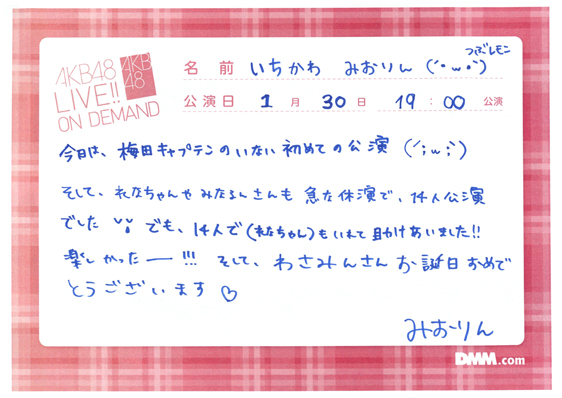 AKB48
LIVE!!
ON DEMAND
AKB
48
つぶレモン
名 前 いちかわ みおりん (´・ω・`)
公演日 1 月 30 日 19 : 00 公演
今日は、梅田キャプテンのいない初めての公演 (´;ω;`)
そして、れなちゃんやみなるんさんも 急な休演で、14人公演
でした でも、14人で(れなちゃん)もいれて助けあいました!!
楽しかったー!!! そして、わさみんさんお誕生日おめで
とうございます♡
みおりん
DMM.com